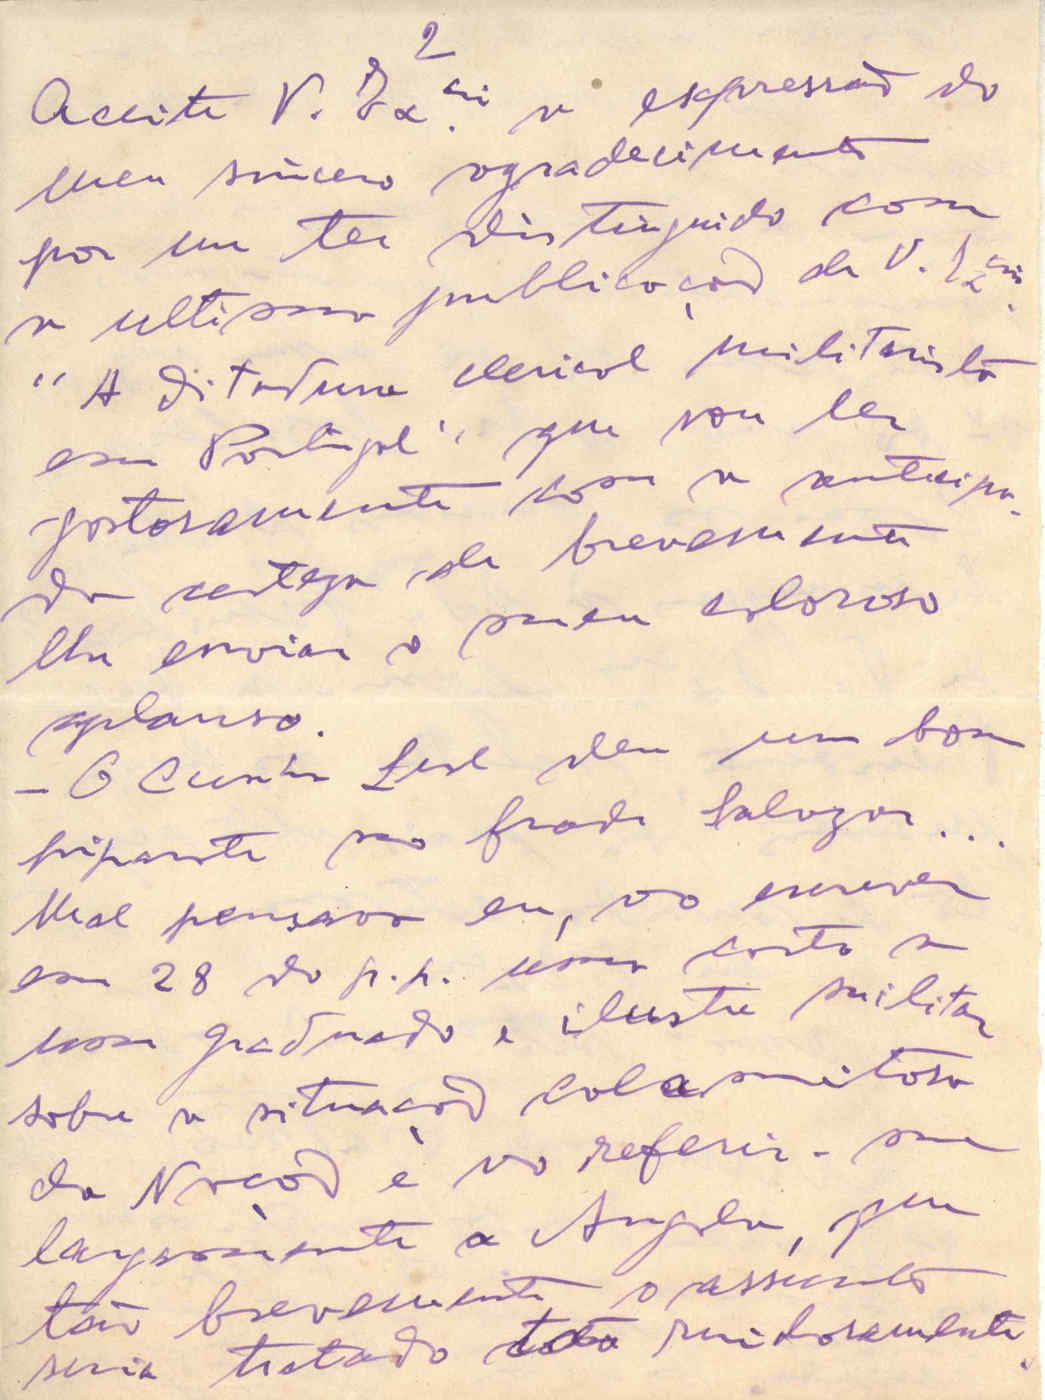 2
Aceite V. Ex.cia a expressão do
meu sincero agradecimento
por me ter distinguido com
a ultima publicação de V. Ex.cia
"A ditadura clerical militarista
em Portugal" que vou ler
gostosamente com a antecipa-
da certeza de brevemente
lhe enviar o meu caloroso
aplauso.
- O Cunha Leal deu um bom
piparote no frade Salazar...
Mal pensava eu, ao escrever
em 28 do p.p. uma carta a
um graduado e ilustre militar
sobre a situação calamitosa
da Nação e ao referir-me
largamente a Angola, que
tão brevemente o assunto
seria tratado tão ruidosamente.